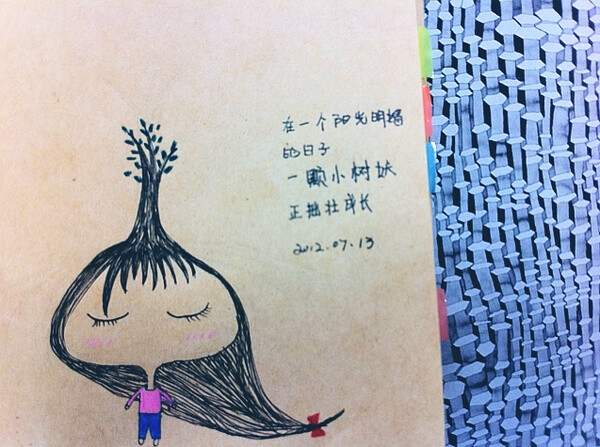 在一个阳光明媚
的日子
一颗小树妖
正拙壮成长
2012.07.13